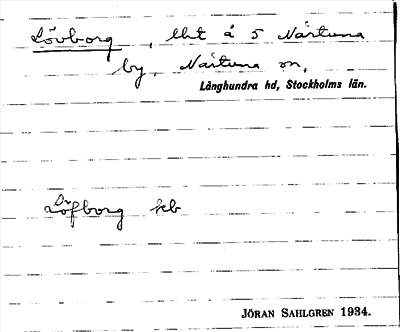 Lövborg, lht å 5 Närtuna
by, Närtuna sn,
Långhundra hd, Stockholms län.
Löfborg kb
JÖRAN SAHLGREN 1934.